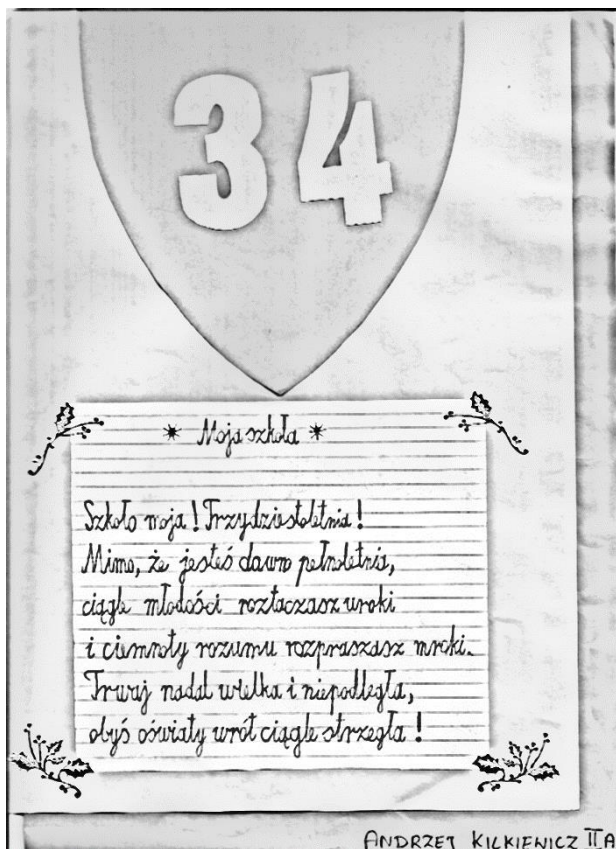 34
* Moja szkoła *
Szkoło moja! Trzydziestoletnia!
Mimo, że jesteś dawno pełnoletnia,
ciągle młodości roztaczasz uroki
i ciemnoty rozumu rozpraszasz mroki.
Trwaj nadal wielka i niepodległa,
obyś oświaty wrót ciągle strzegła!
ANDRZEJ KILKIEWICZ II A